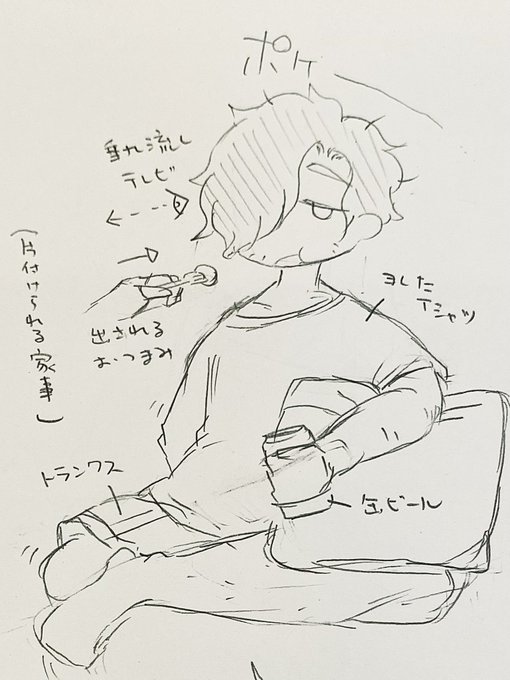 ポケ〜
垂れ流し
テレビ
出される
おつまみ
(片付けられる家事)
ヨレた
Tシャツ
トランクス
缶ビール